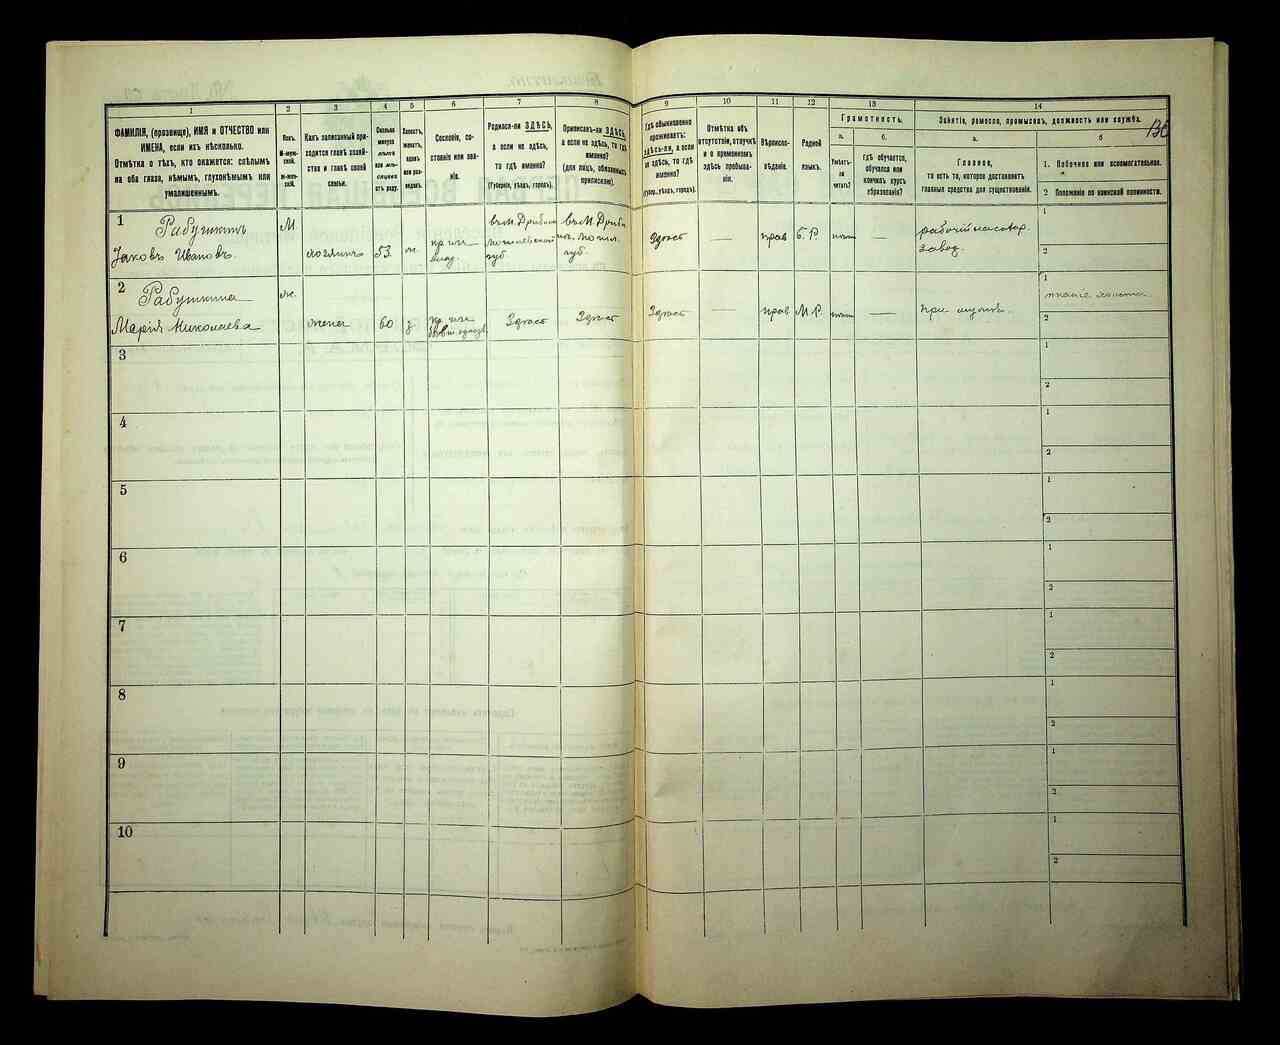 1
2
3
4
5
6
7
8
9
10
11
12
13
14
ФАМИЛІЯ, (прозвище), ИМЯ и ОТЧЕСТВО или
ИМЕНА, если ихъ нѣсколько.
Отмѣтка о тѣхъ, кто окажется: слѣпымъ
на оба глаза, нѣмымъ, глухонѣмымъ или
умалишеннымъ.
Полъ.
М-муж-
ской.
Ж-жен-
скій.
Какъ записанный при-
ходится главѣ хозяй-
ства и главѣ своей
семьи.
Сколько
минуло
лѣтъ
или мѣ-
сяцевъ
отъ роду.
Холостъ,
женатъ,
вдовъ
или раз-
веденъ.
Сословіе, со-
стояніе или зва-
ніе.
Родился-ли ЗДѢСЬ,
а если не здѣсь,
то гдѣ именно?
(Губернія, уѣздъ, городъ).
Приписанъ-ли ЗДѢСЬ,
а если не здѣсь, то гдѣ
именно?
(для лицъ, обязанныхъ
припискою).
Гдѣ обыкновенно
проживаетъ:
ЗДѢСЬ-ЛИ, а если
не здѣсь, то гдѣ
именно?
(Губер., уѣздъ, городъ).
Отмѣтка объ
отсутствіи, отлучкѣ
и о временномъ
здѣсь пребыва-
ніи.
Вѣроиспо-
вѣданіе.
Родной
языкъ.
Грамотность.
а.
Умѣетъ-
ли
читать?
б.
гдѣ обучается,
обучался или
кончилъ курсъ
образованія?
Занятіе, ремесло, промыселъ, должность или служба.
136
а.
Главное,
то есть то, которое доставляетъ
главныя средства для существованія.
б
1. Побочное или вспомогательное.
2 Положеніе по воинской повинности.
1
Рабушкинъ
Яковъ Ивановъ.
М.
хозяинъ
53.
въ М. Дрибинѣ
Могилевской
губ
губ.
Здѣсь
—
прав
Б. Р.
нѣтъ
—
рабочій
завод.
1
2
2
Рабушкина
Марія Николаева
ж.
жена
60
з.
Здѣсь
Здѣсь
Здѣсь
—
прав
М. Р.
нѣтъ
—
при мужѣ.
1
2
3
1
2
4
1
2
5
1
2
6
1
2
7
1
2
8
1
2
9
1
2
10
1
2